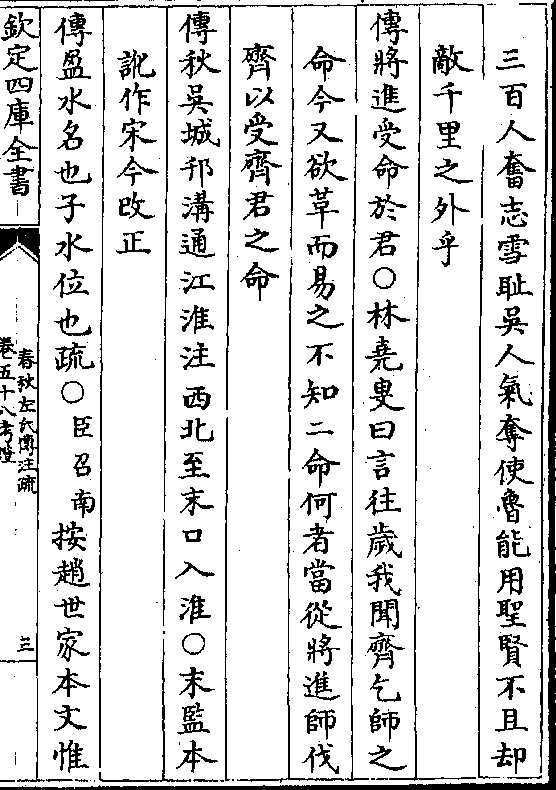 三百人奮志雪耻吳人氣奪使魯能用聖賢不且却
敵千里之外乎
傳將進受命於君○林堯叟曰言往歲我聞齊乞師之
命今又欲革而易之不知二命何者當從將進師伐
齊以受齊君之命
傳秋吳城邗溝通江淮注西北至末口入淮○末監本
訛作宋今改正
傳盈水名也子水位也疏○臣召南按趙世家本文惟
欽定四庫全書
春秋左氏傳注疏
卷五十八考證
三